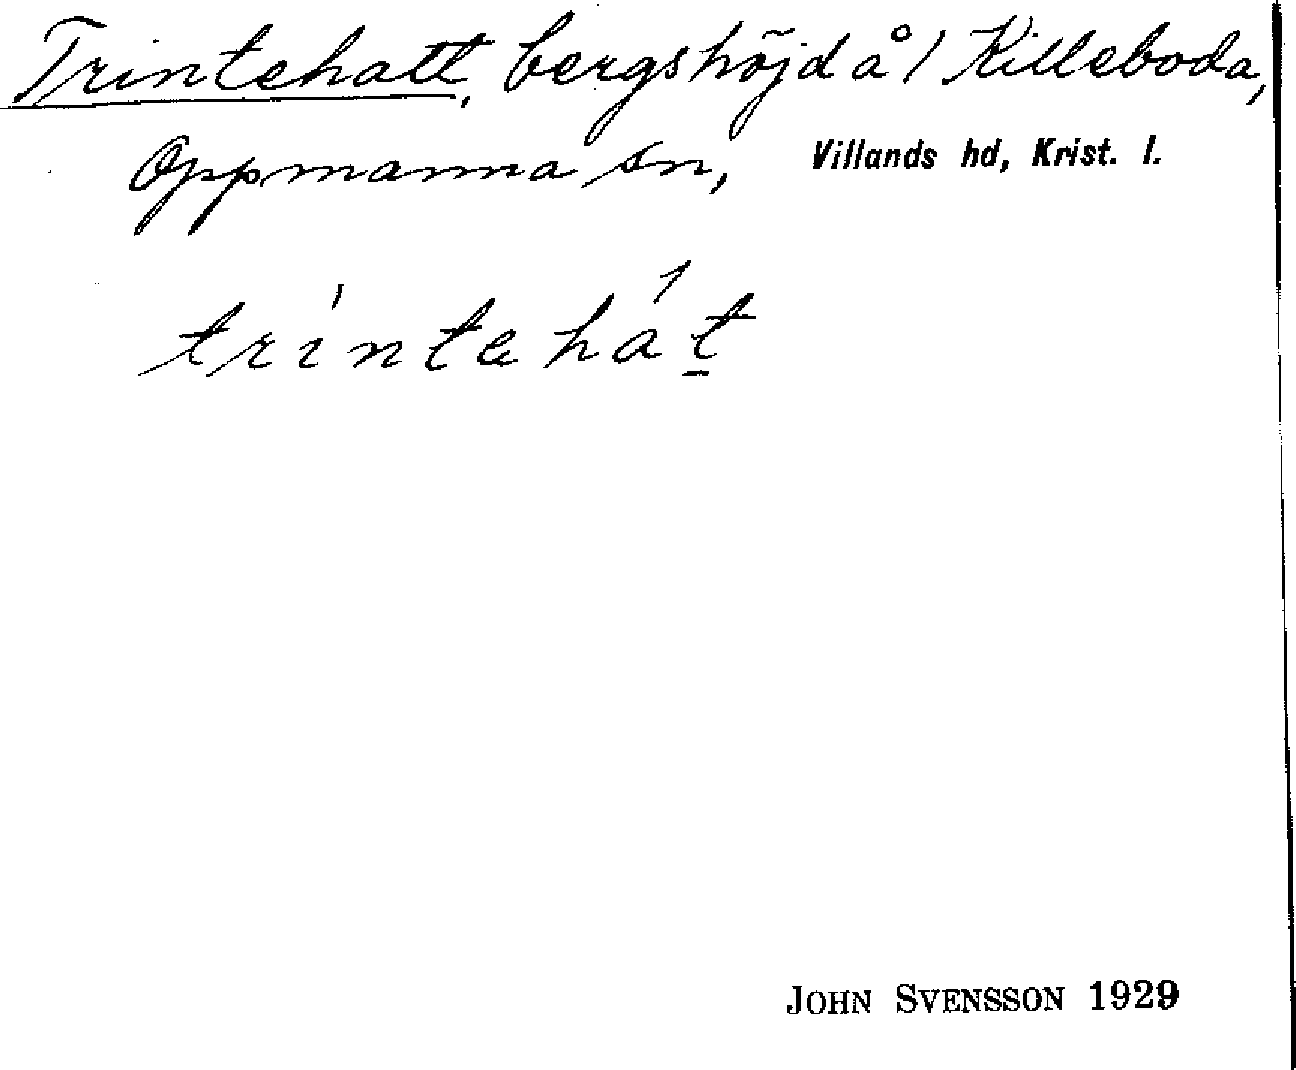 Trintehatt, bergshöjd å 1 Killeboda,
Oppmanna sn, Villands hd, Krist. l.
trìntehát
John Svensson 1929